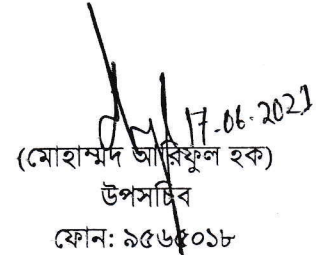 17-06-2021
(মোহাম্মদ আরিফুল হক)
উপসচিব
ফোন: ৯৫৬৫০১৮